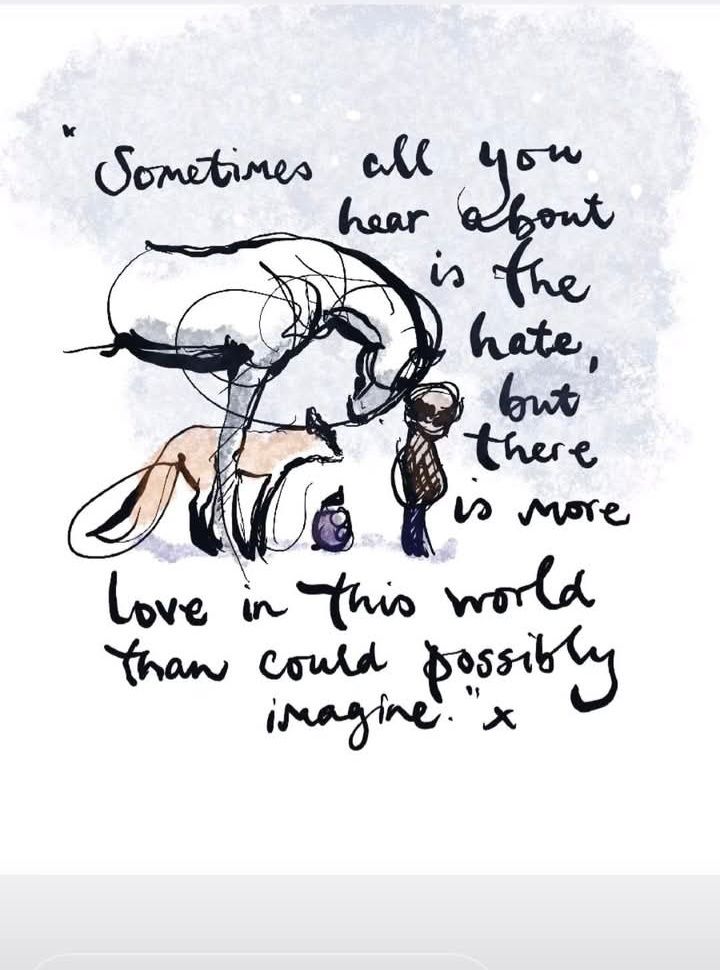 "Sometimes all you
hear about
is the
hate,
but
there
is more
love in this world
than could possibly
imagine." x